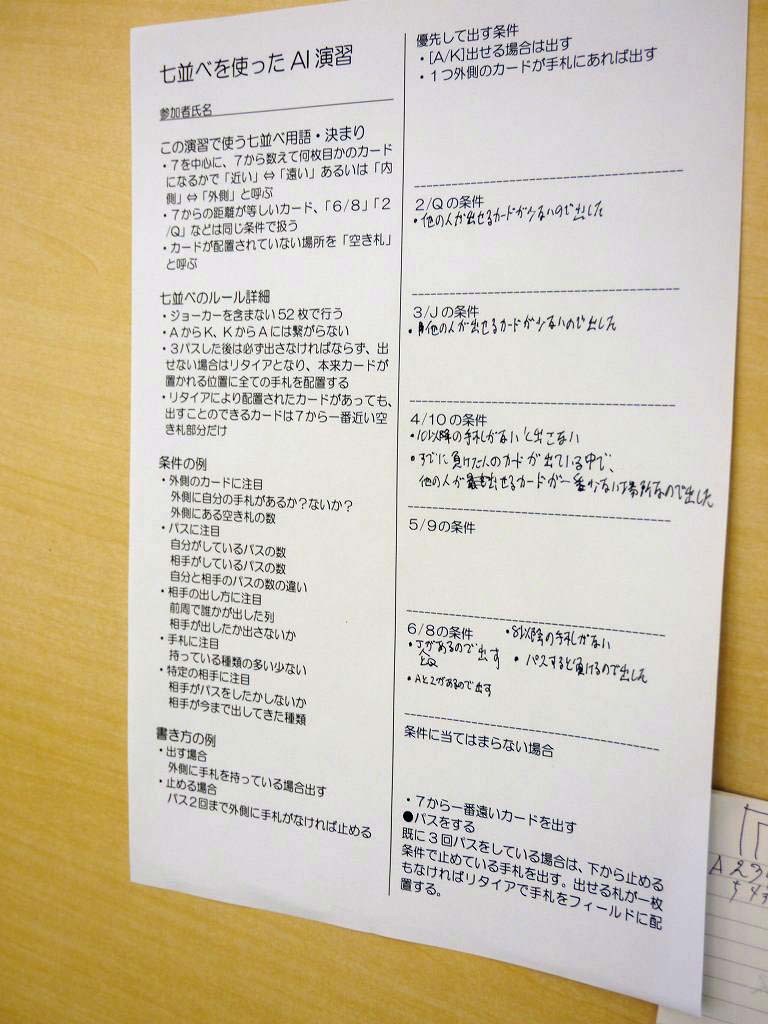 七並べを使ったAI演習
参加者氏名
この演習で使う七並べ用語・決まり
・7を中心に、7から数えて何枚目かのカード
になるかで「近い」⇔「遠い」あるいは「内
側」⇔「外側」と呼ぶ
・7からの距離が等しいカード、「6/8」「2
/Q」などは同じ条件で扱う
・カードが配置されていない場所を「空き札」
と呼ぶ
七並べのルール詳細
・ジョーカーを含まない52枚で行う
・AからK、KからAには繋がらない
・3パスした後は必ず出さなければならず、出
せない場合はリタイアとなり、本来カードが
置かれる位置に全ての手札を配置する
・リタイアにより配置されたカードがあっても、
出すことのできるカードは7から一番近い空
き札部分だけ
条件の例
・外側のカードに注目
外側に自分の手札があるか?ないか?
外側にある空き札の数
・パスに注目
自分がしているパスの数
相手がしているパスの数
自分と相手のパスの数の違い
・相手の出し方に注目
前周で誰かが出した列
相手が出したか出さないか
・手札に注目
持っている種類の多い少ない
・特定の相手に注目
相手がパスをしたかしないか
相手が今まで出してきた種類
書き方の例
・出す場合
外側に手札を持っている場合出す
・止める場合
パス2回まで外側に手札がなければ止める
優先して出す条件
・[A/K]出せる場合は出す
・1つ外側のカードが手札にあれば出す
2/Qの条件
・他の人が出せるカードが少ないので出した
3/Jの条件
・他の人が出せるカードが少ないので出した
4/10の条件
・10以降の手札がないと出さない
・すでに負けた人のカードが出ている中で、
他の人が出せるカードが一番少ない場所なので出した
5/9の条件
6/8の条件
・8以降の手札がない
・JとQがあるので出す
・パスすると負けるので出した
・Aと2があるので出す
条件に当てはまらない場合
・7から一番遠いカードを出す
●パスをする
既に3回パスをしている場合は、下から止める
条件で止めている手札を出す。出せる札が一枚
もなければリタイアで手札をフィールドに配
置する。